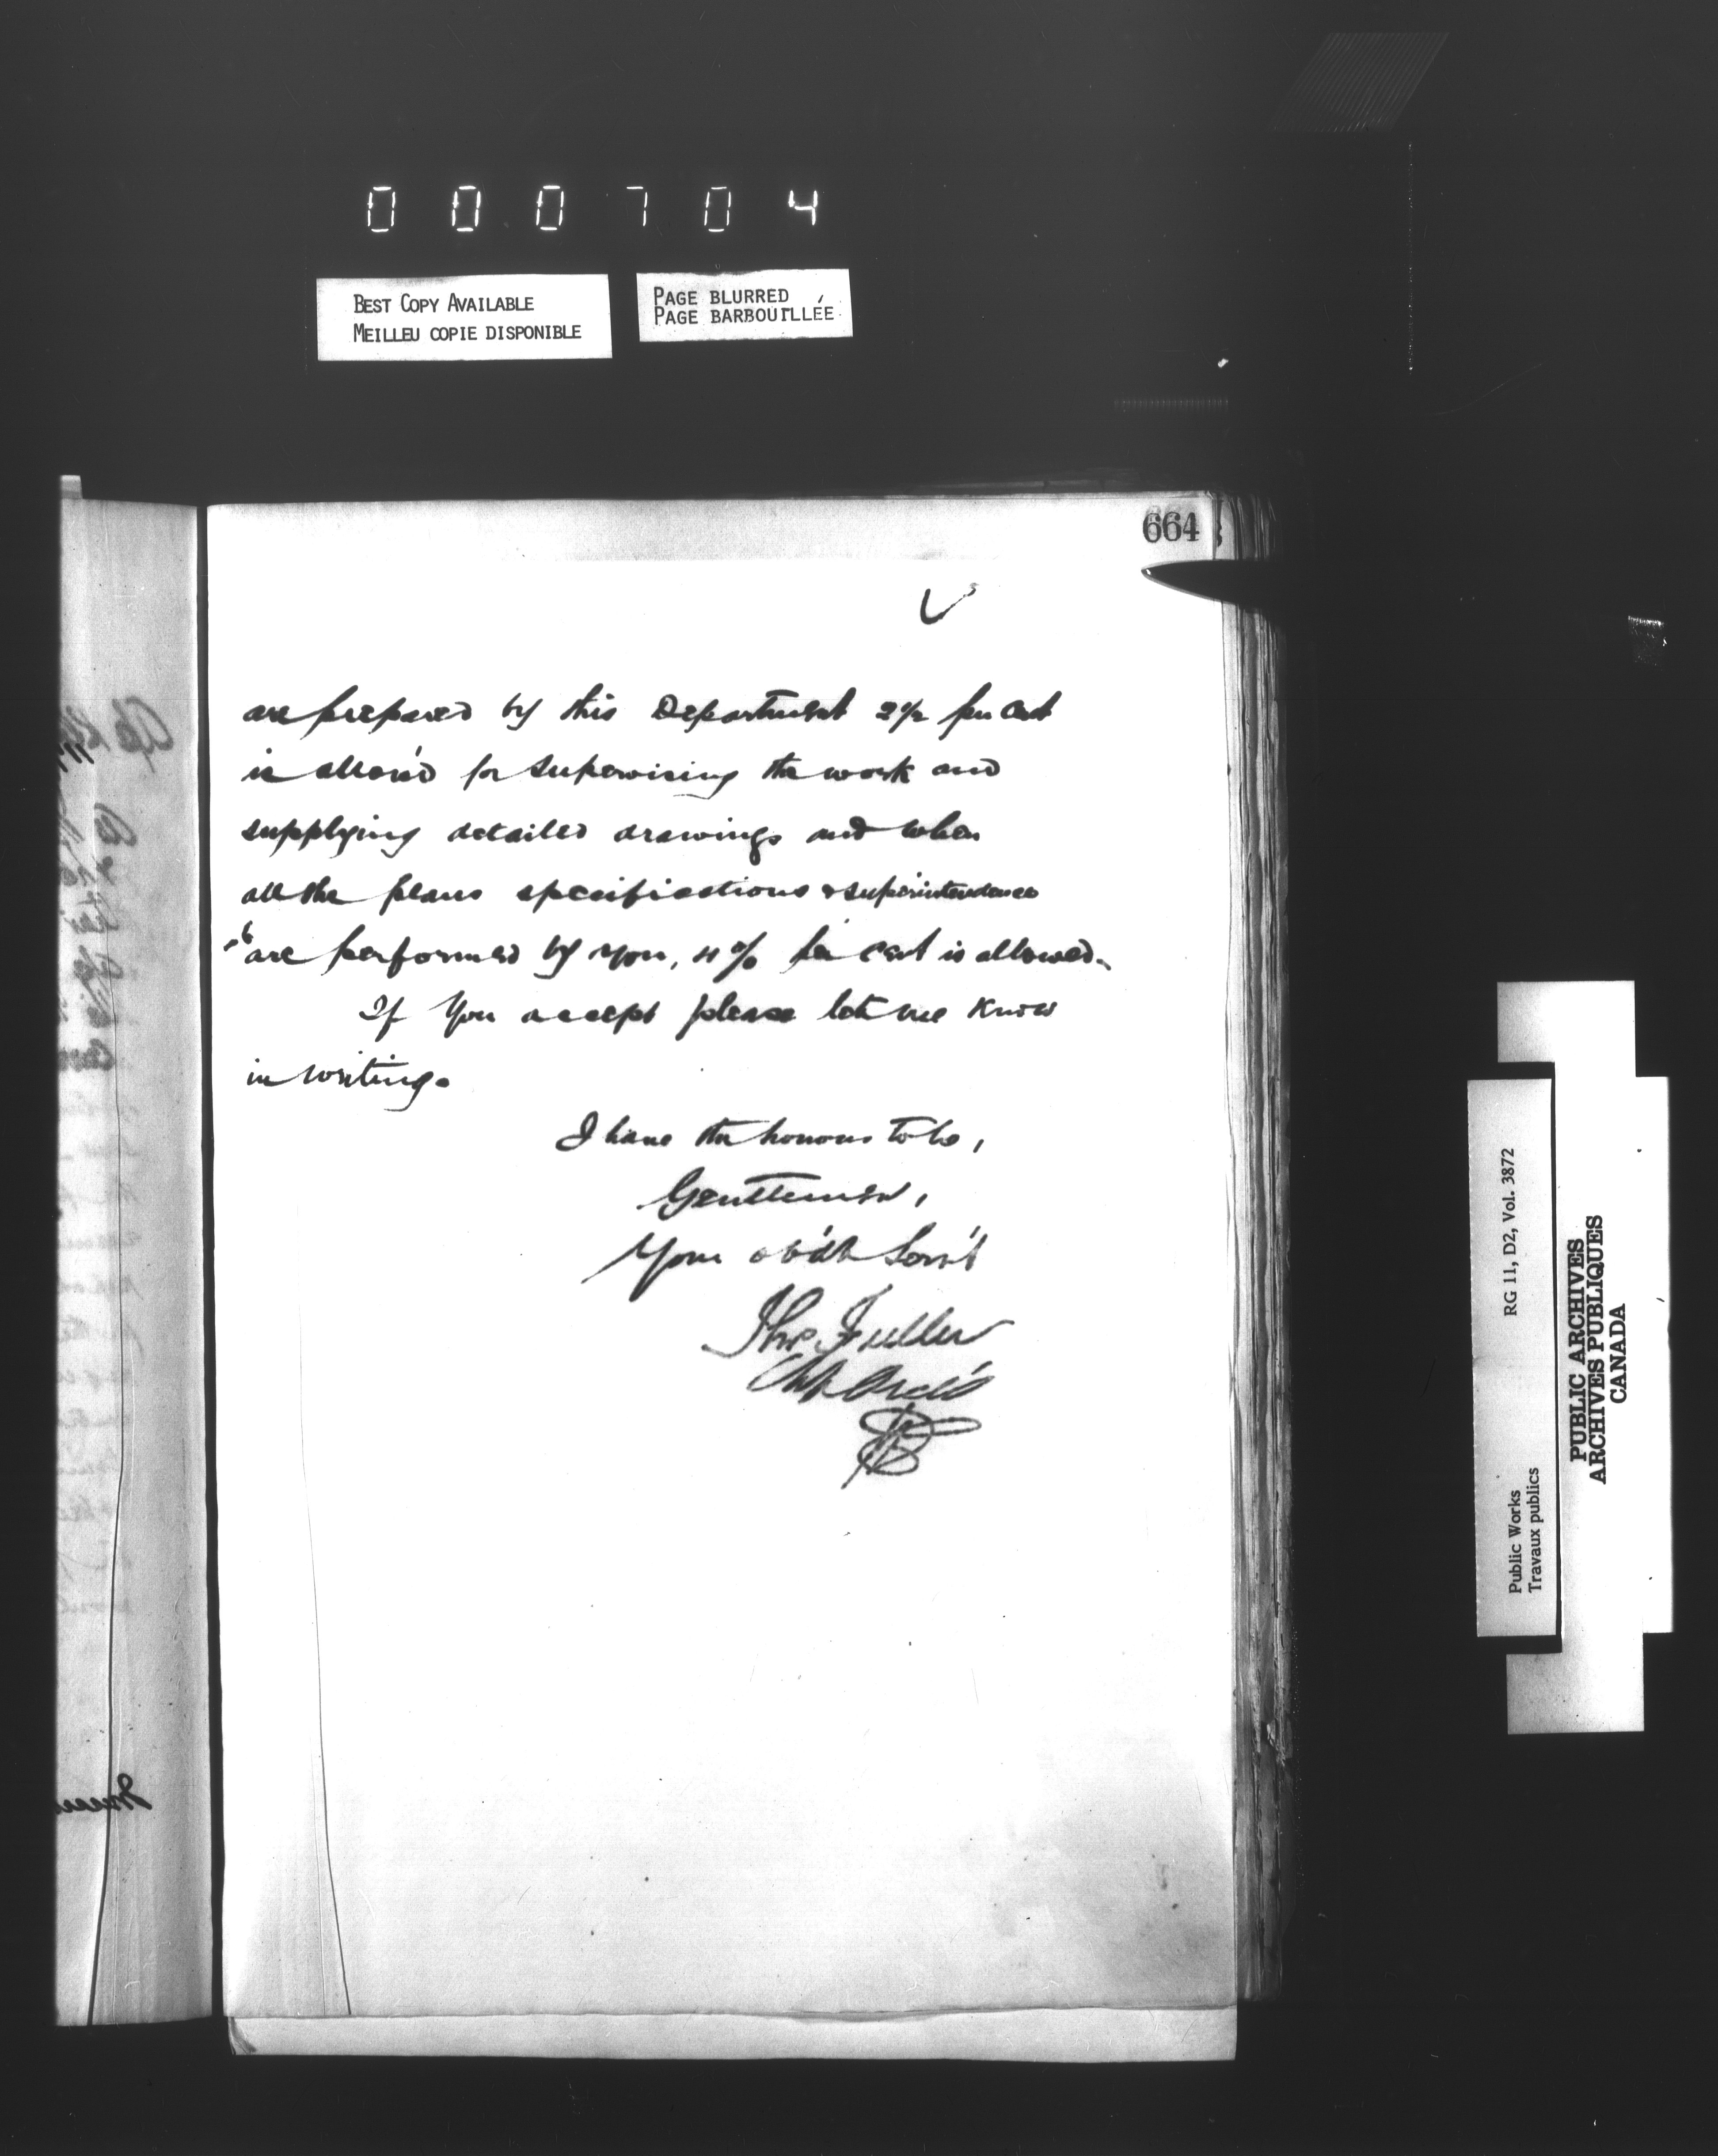 000704
BEST COPY AVAILABLE
MEILLEU COPIE DISPONIBLE
PAGE BLURRED
PAGE BARBOUILLÉE
664
are prepared by this Department 2½ per cent
is allow'd for supervising the work and
supplying detailed drawings and when
all the plans specifications & superintendence
are performed by you, 4% per cent is allowed.
If you accept please let me know
in writing.
I have the honour to be,
Gentlemen,
Your ob'dt Serv't
Thos. Fuller
Chf Arch't
Public Works
Travaux publics
RG 11, D2, Vol. 3872
PUBLIC ARCHIVES
ARCHIVES PUBLIQUES
CANADA